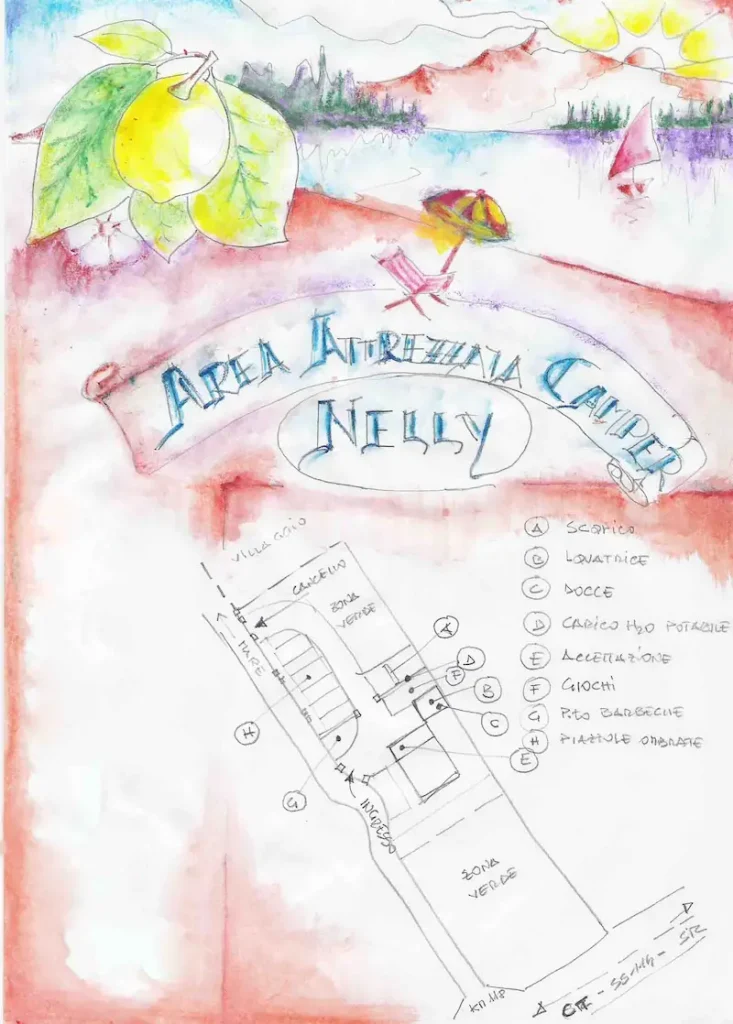 AREA ATTREZZATA CAMPER
NELLY
VILLAGGIO
CANCELLO
ZONA
VERDE
MARE
A SCARICO
B LAVATRICE
C DOCCE
D CARICO H2O POTABILE
E ACCETTAZIONE
F GIOCHI
G P.TO BARBECUE
H PIAZZOLE OMBRATE
A
D
F
B
C
H
E
G
INGRESSO
ZONA
VERDE
CT - SS-114 - SR